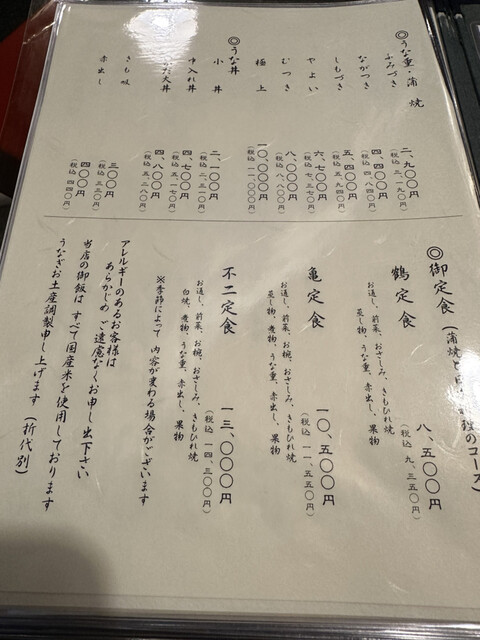 ◎うな重・蒲焼
ふみづき 二、九〇〇円
(税込 三、一九〇円)
ながつき 四、四〇〇円
(税込 四、八四〇円)
しもづき 五、四〇〇円
(税込 五、九四〇円)
やよい 六、七〇〇円
(税込 七、三七〇円)
むつき 八、〇〇〇円
(税込 八、八〇〇円)
極上 一〇、〇〇〇円
(税込 一一、〇〇〇円)
◎うな丼
小丼 二、一〇〇円
(税込 二、三一〇円)
中入れ丼 四、七〇〇円
(税込 五、一七〇円)
大丼 四、八〇〇円
(税込 五、二八〇円)
きも吸 三〇〇円
(税込 三三〇円)
赤出し 四〇〇円
(税込 四四〇円)
◎御定食 (蒲焼と 理のコース)
鶴定食 八、五〇〇円
(税込 九、三五〇円)
お通し、前菜、おさしみ、きもひれ焼
蒸し物、うな重、赤出し、果物
亀定食 一〇、五〇〇円
(税込 一一、五五〇円)
お通し、前菜、お椀、おさしみ、きもひれ焼
蒸し物、煮物、うな重、赤出し、果物
不二定食 一三、〇〇〇円
(税込 一四、三〇〇円)
お通し、前菜、お椀、おさしみ、きもひれ焼
白焼、煮物、うな重、赤出し、果物
※季節によって内容が変わる場合がございます
アレルギーのあるお客様は
あらかじめご遠慮なくお申し出下さい
当店の御飯はすべて国産米を使用しております
うなぎお土産調製申し上げます(折代別)